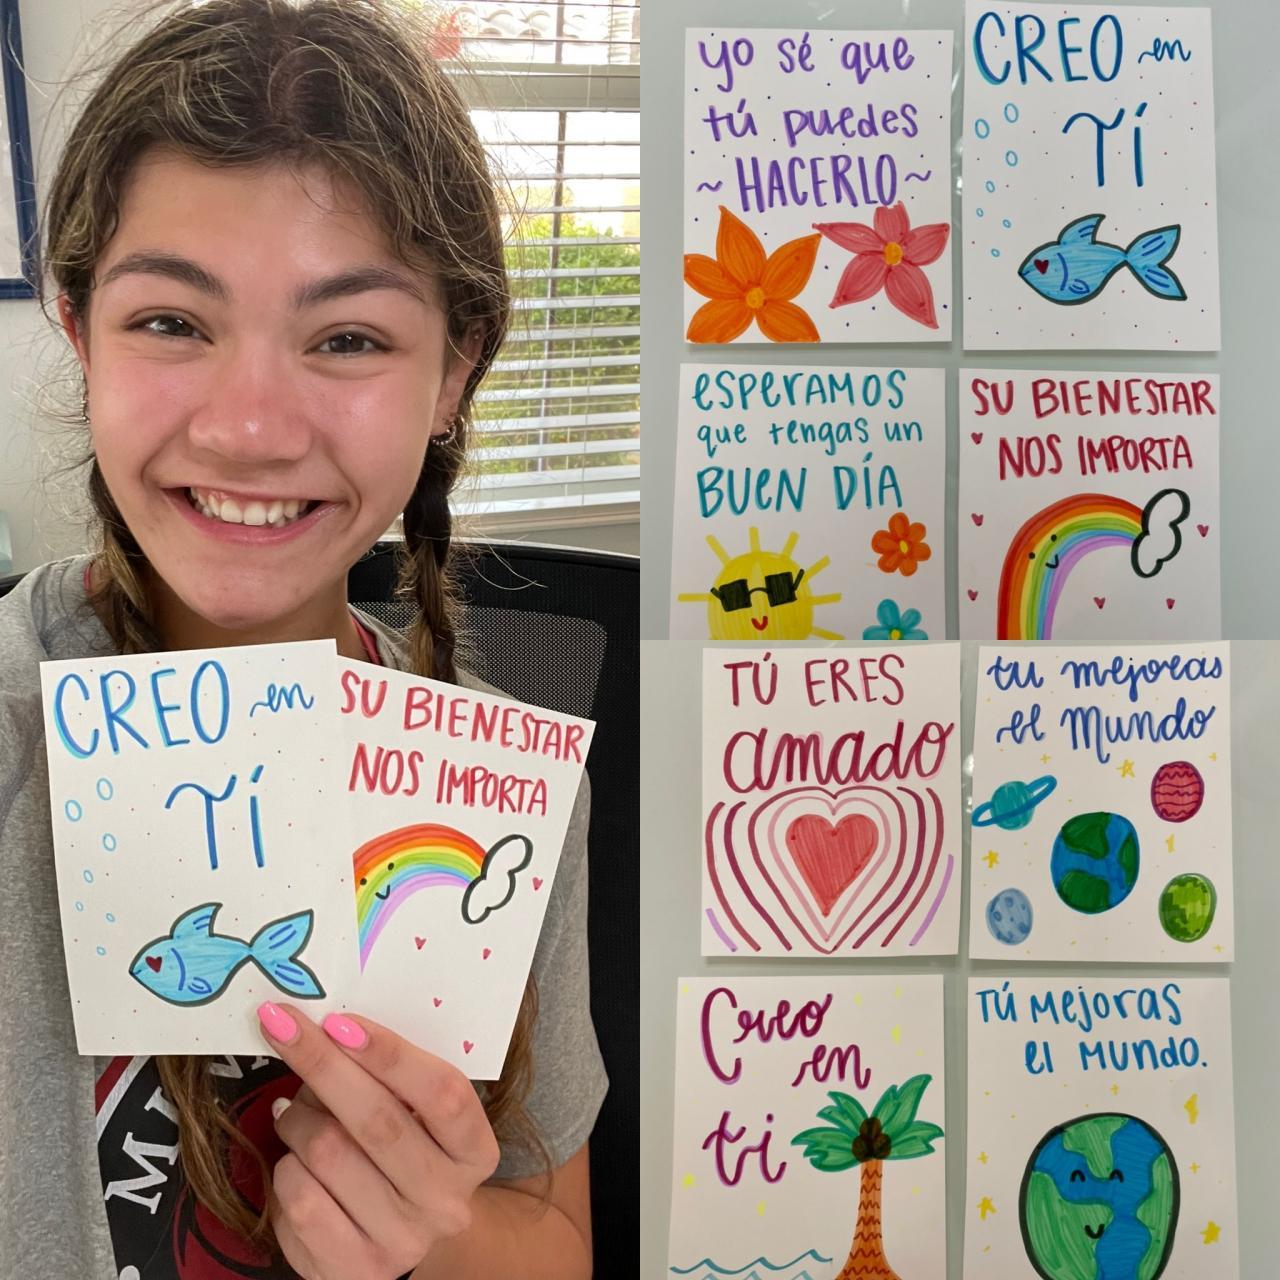 CREO en
TÍ
SU BIENESTAR
NOS IMPORTA
yo sé que
tú puedes
~ HACERLO ~
CREO en
TÍ
esperamos
que tengas un
BUEN DÍA
SU BIENESTAR
NOS IMPORTA
TÚ ERES
amado
tu mejoras
el mundo
Creo
en
ti
TÚ mejoras
el mundo.